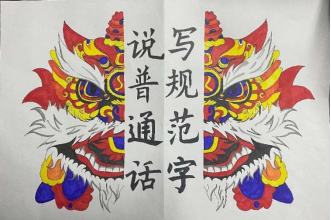 写规范字
说普通话